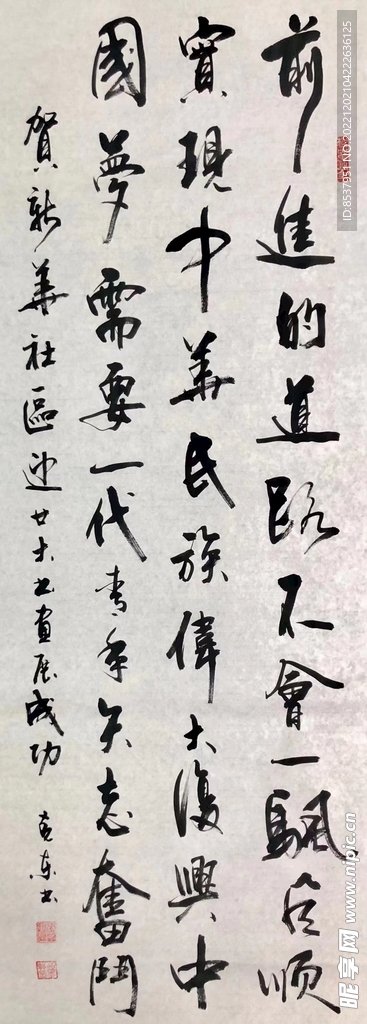 前進的道路不會一颿風顺
實現中華民族偉大復興中
國夢需要一代青年矢志奮鬥
賀新華社區迎廿大书畫展成功
ID:8537951 NO:20221202104222636125
昵享网 www.nipic.cn